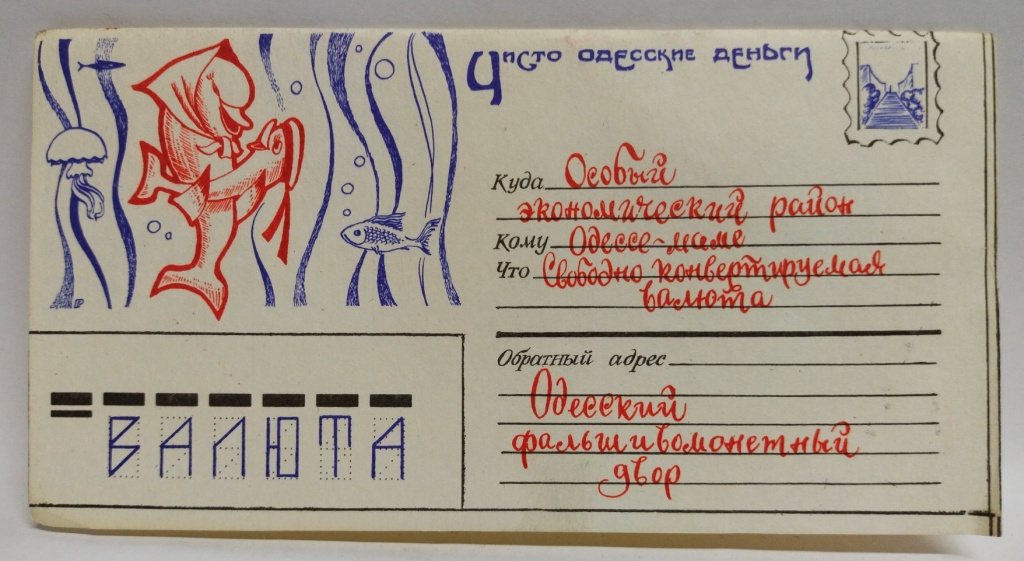 Чисто одесские деньги
Куда Особый
экономический район
Кому Одессе-маме
Что Свободно конвертируемая
валюта
Обратный адрес
Одесский
фальшивомонетный
двор
ВАЛЮТА